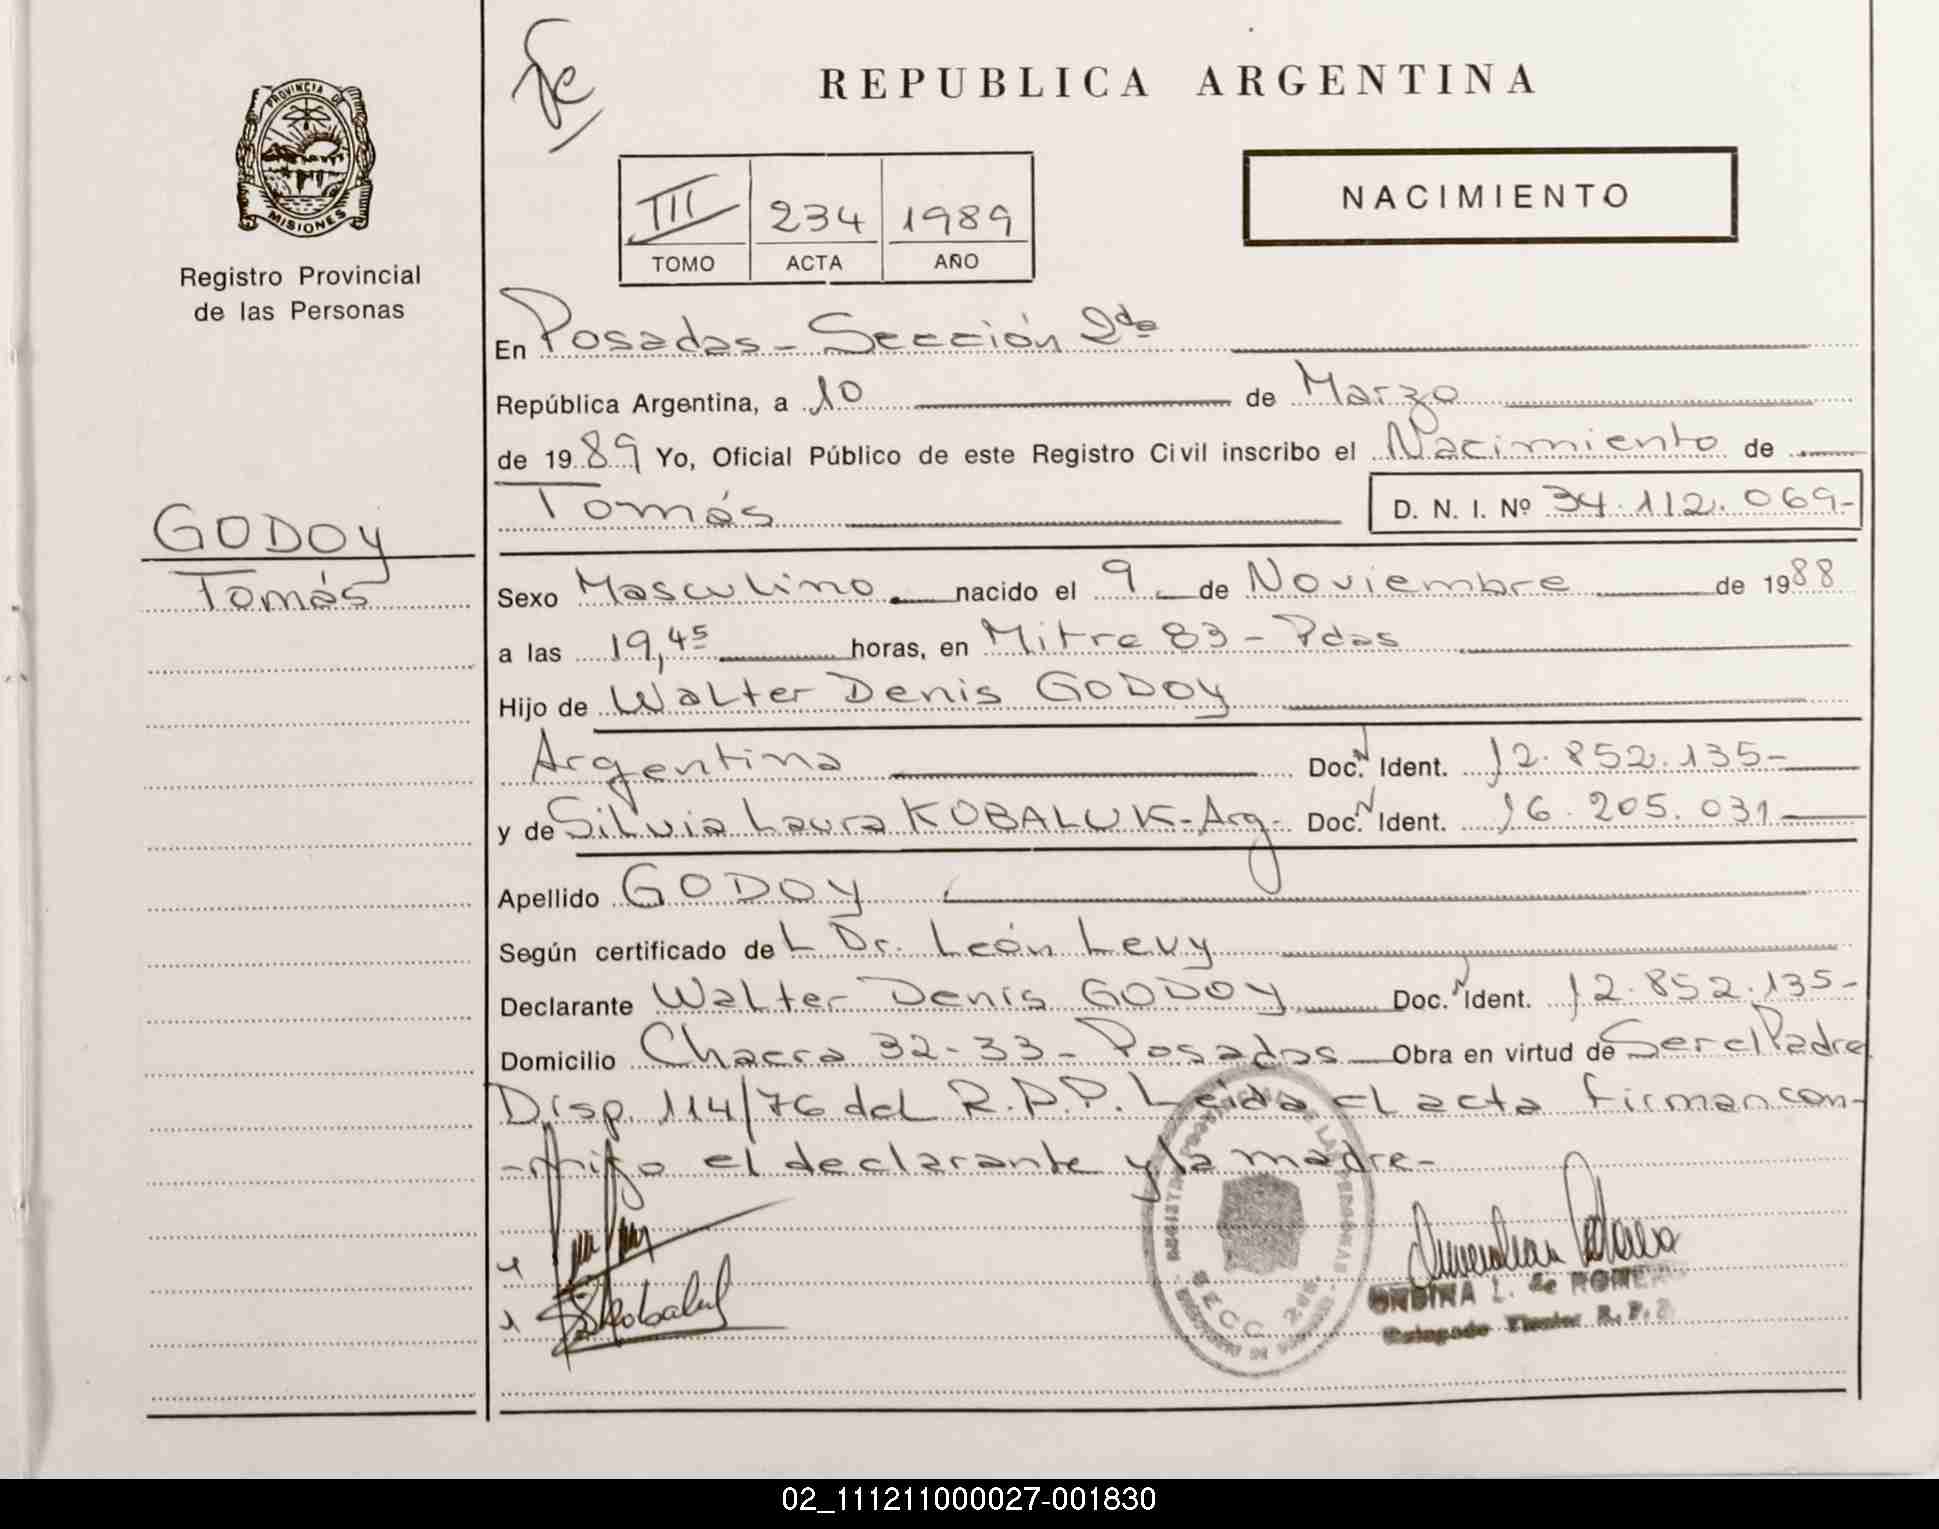 PROVINCIA DE
MISIONES
Registro Provincial
de las Personas
GODOY
Tomás
REPUBLICA ARGENTINA
III 234 1989
TOMO ACTA AÑO
NACIMIENTO
En Posadas - Sección 2da
República Argentina, a 10 de Marzo
de 1989 Yo, Oficial Público de este Registro Civil inscribo el Nacimiento de
Tomás D. N. I. Nº 34.112.069-
Sexo Masculino nacido el 9 de Noviembre de 1988
a las 19,45 horas, en Mitre 83 - Pdas
Hijo de Walter Denis GODOY
Argentina Doc. Ident. 12.852.135-
y de Silvia Laura KOBALUK-Arg- Doc. Ident. 16.205.031
Apellido GODOY
Según certificado de L Dr. León Levy
Declarante Walter Denis GODOY Doc. Ident. 12.852.135-
Domicilio Chacra 32-33- Posadas Obra en virtud de Ser el Padre
Disp. 114/76 del R.P.P. Leida el acta firman con-
-migo el declarante y la madre-
SECC. 2da.
ONDINA L. de ROMERO
Delegado Titular R. P. P.
02_111211000027-001830